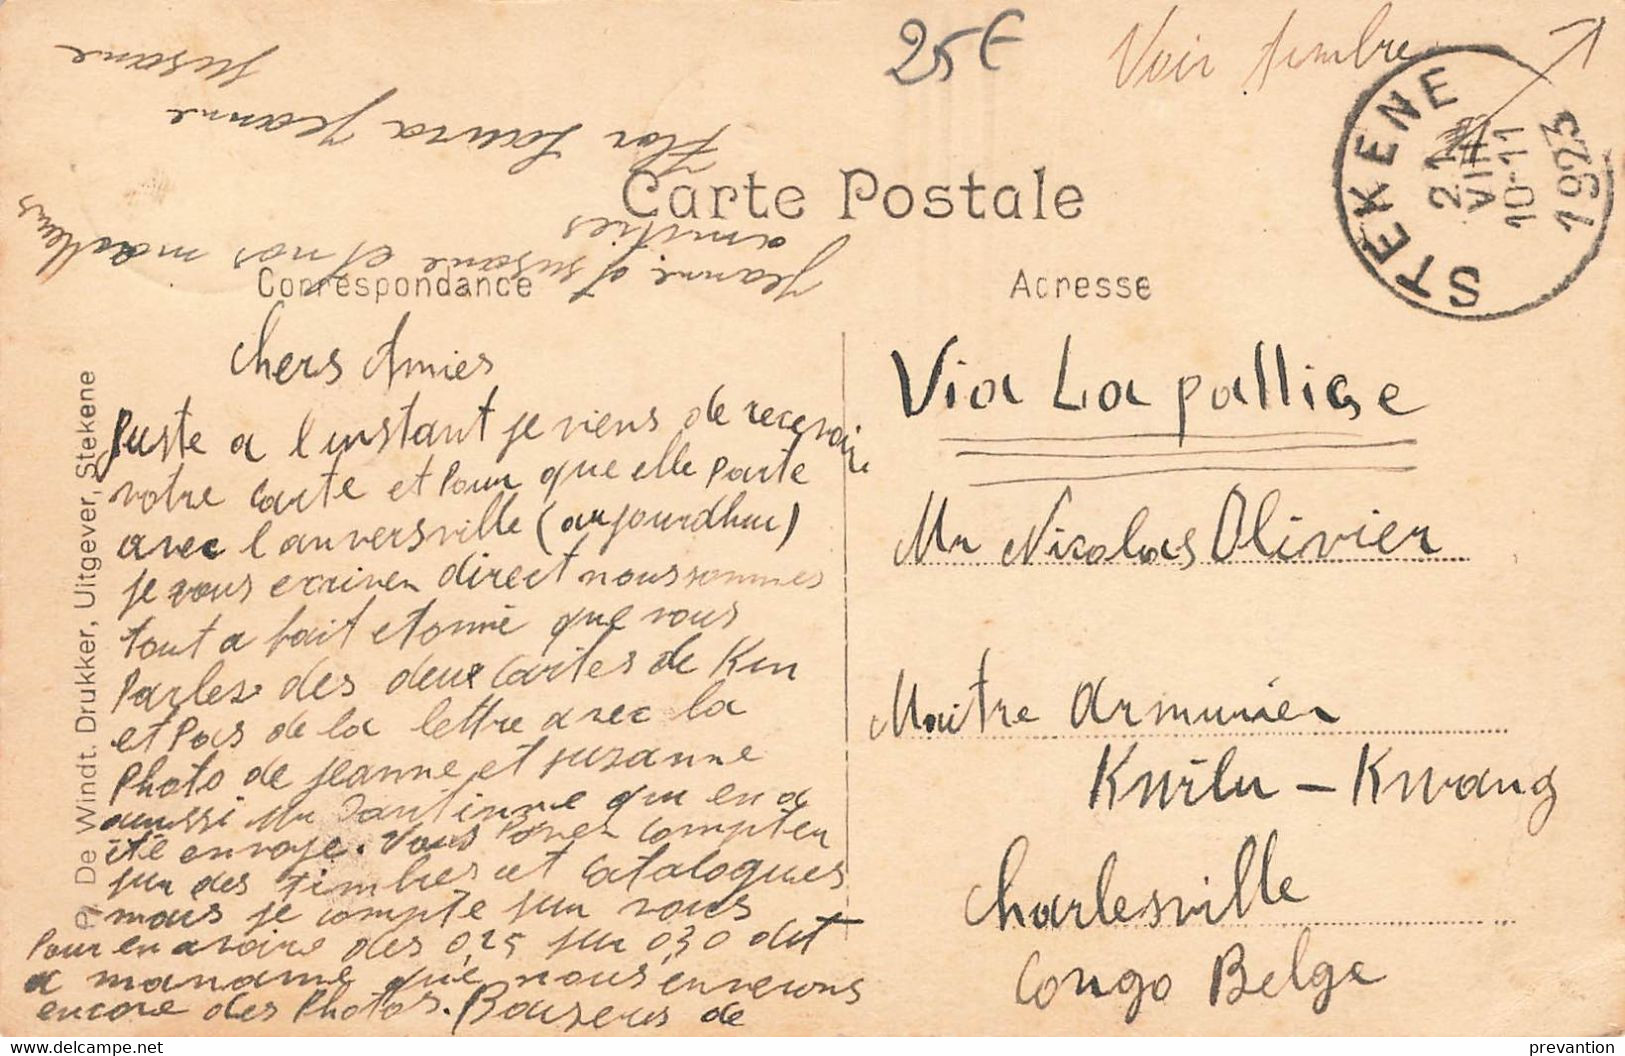 25€
Voir timbre
STEKENE
21
VIII
10-11
1923
Carte Postale
Correspondance
Adresse
P. De Windt. Drukker, Uitgever, Stekene
Chers Amies
Juste a l'instant je viens de recevoir
votre carte et Pour que elle Parte
avec l'anversville (aujourdhui)
je vous ecriven direct nous sommes
tout a fait etonné que vous
Parlez des deux cartes de Kin
et Pas de la lettre avec la
Photo de Jeanne et Suzanne
aussi Mr qui en a
été envoye. Vous Pover compter
sur des timbres et Catalogues
mais je compte sur vous
Pour en avoire des 0,25 sur 0,30 dit
a maname que nous enverons
encore des Photos. Baisers de
Jeanne et Susane et nos meilleurs
amities
Flor Laura Jeanne
Susane
Via La pallice
Mr Nicolas Olivier
Maitre Armurier
Kwilu - Kwang
Charlesville
Congo Belge
delcampe.net
prevantion